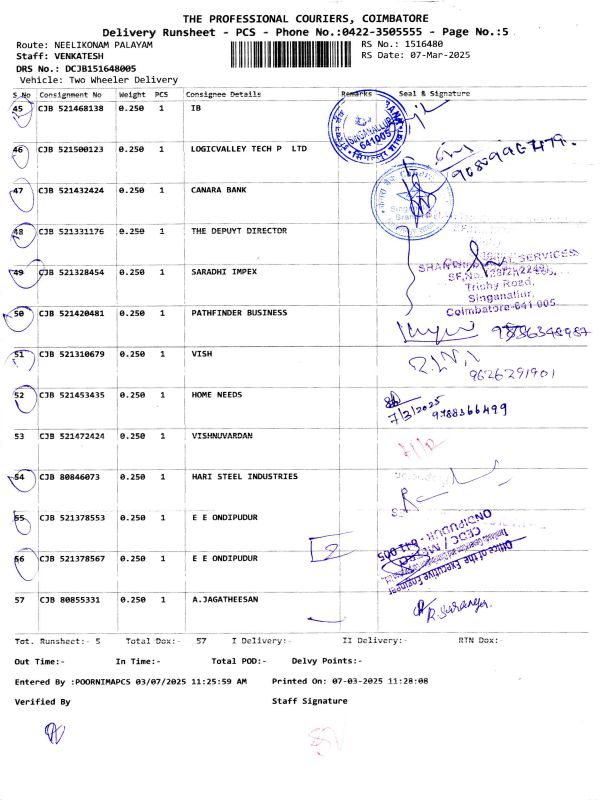 THE PROFESSIONAL COURIERS, COIMBATORE
Delivery Runsheet - PCS - Phone No.:0422-3505555 - Page No.:5
Route: NEELIKONAM PALAYAM RS No.: 1516480
Staff: VENKATESH RS Date: 07-Mar-2025
DRS No.: DCJB151648005
Vehicle: Two Wheeler Delivery
S No Consignment No Weight PCS Consignee Details Remarks Seal & Signature
45 CJB 521468138 0.250 1 IB
SINGANALLUR
641005
46 CJB 521500123 0.250 1 LOGICVALLEY TECH P LTD
47 CJB 521432424 0.250 1 CANARA BANK
48 CJB 521331176 0.250 1 THE DEPUYT DIRECTOR
49 CJB 521328454 0.250 1 SARADHI IMPEX
Trichy Road,
Singanallur,
Coimbatore-641 005.
50 CJB 521420481 0.250 1 PATHFINDER BUSINESS
51 CJB 521310679 0.250 1 VISH
9626291901
52 CJB 521453435 0.250 1 HOME NEEDS
7/3/2025
9788366499
53 CJB 521472424 0.250 1 VISHNUVARDAN
54 CJB 80846073 0.250 1 HARI STEEL INDUSTRIES
55 CJB 521378553 0.250 1 E E ONDIPUDUR
56 CJB 521378567 0.250 1 E E ONDIPUDUR
2
Office of the Executive Engineer
CEDC / M
ONDIPUDUR - 641 005
57 CJB 80855331 0.250 1 A.JAGATHEESAN
Tot. Runsheet:- 5 Total Dox:- 57 I Delivery:- II Delivery:- RTN Dox:-
Out Time:- In Time:- Total POD:- Delvy Points:-
Entered By :POORNIMAPCS 03/07/2025 11:25:59 AM Printed On: 07-03-2025 11:28:08
Verified By Staff Signature